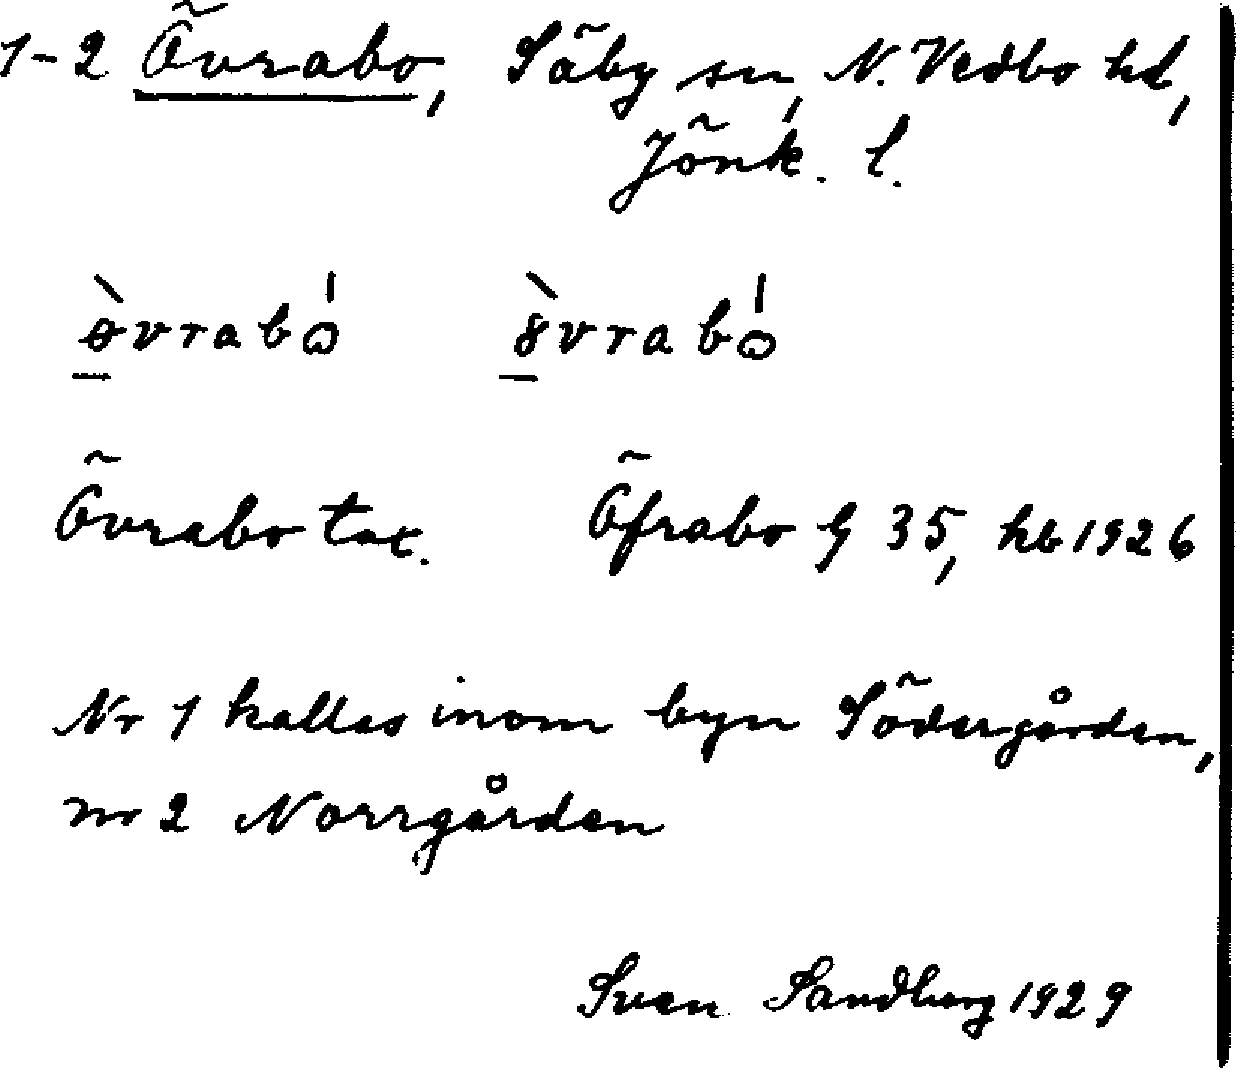 1-2 Övrabo, Säby sn, N. Vedbo hd,
Jönk. l.
ɵ̀vrabó ȣ̀vrabó
Övrabo tax. Öfrabo G 35, hb 1926
Nr 1 kallas inom byn Södergården,
nr 2 Norrgården
Sven Sandberg 1929